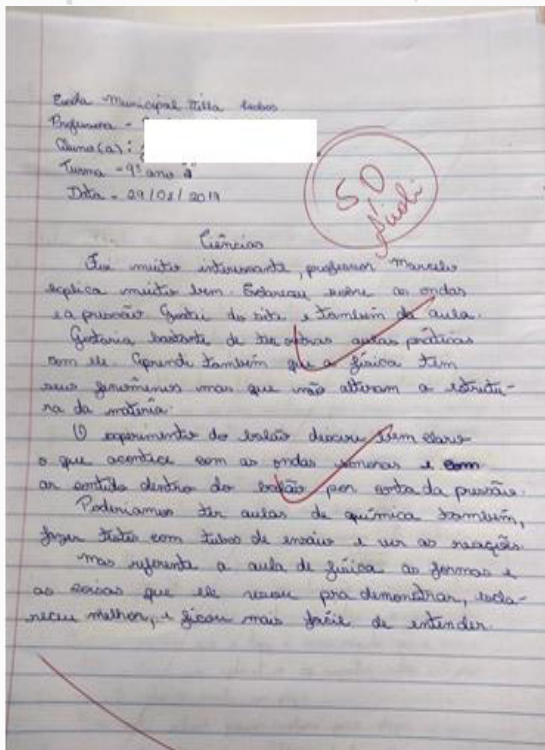 Escola Municipal Villa Lobos
Professora -
Aluno(a):
Turma - 9º ano
Data - 29/08/2019
5.0
Ciências
Foi muito interessante, professor Marcelo
explica muito bem. Esclareceu sobre as ondas
e a pressão. Gostei do site e também da aula.
Gostaria bastante de ter outras aulas práticas
com ele. Aprendi também que a física tem
seus fenômenos mas que não alteram a estrutu-
ra da matéria.
O experimento do balão deixou bem claro
o que acontece com as ondas sonoras e com
ar contido dentro do balão por conta da pressão.
Poderiamos ter aulas de química também,
fazer testes com tubos de ensaio e ver as reações.
Mas referente a aula de física as formas e
as coisas que ele usou pra demonstrar, escla-
receu melhor, e ficou mais fácil de entender.